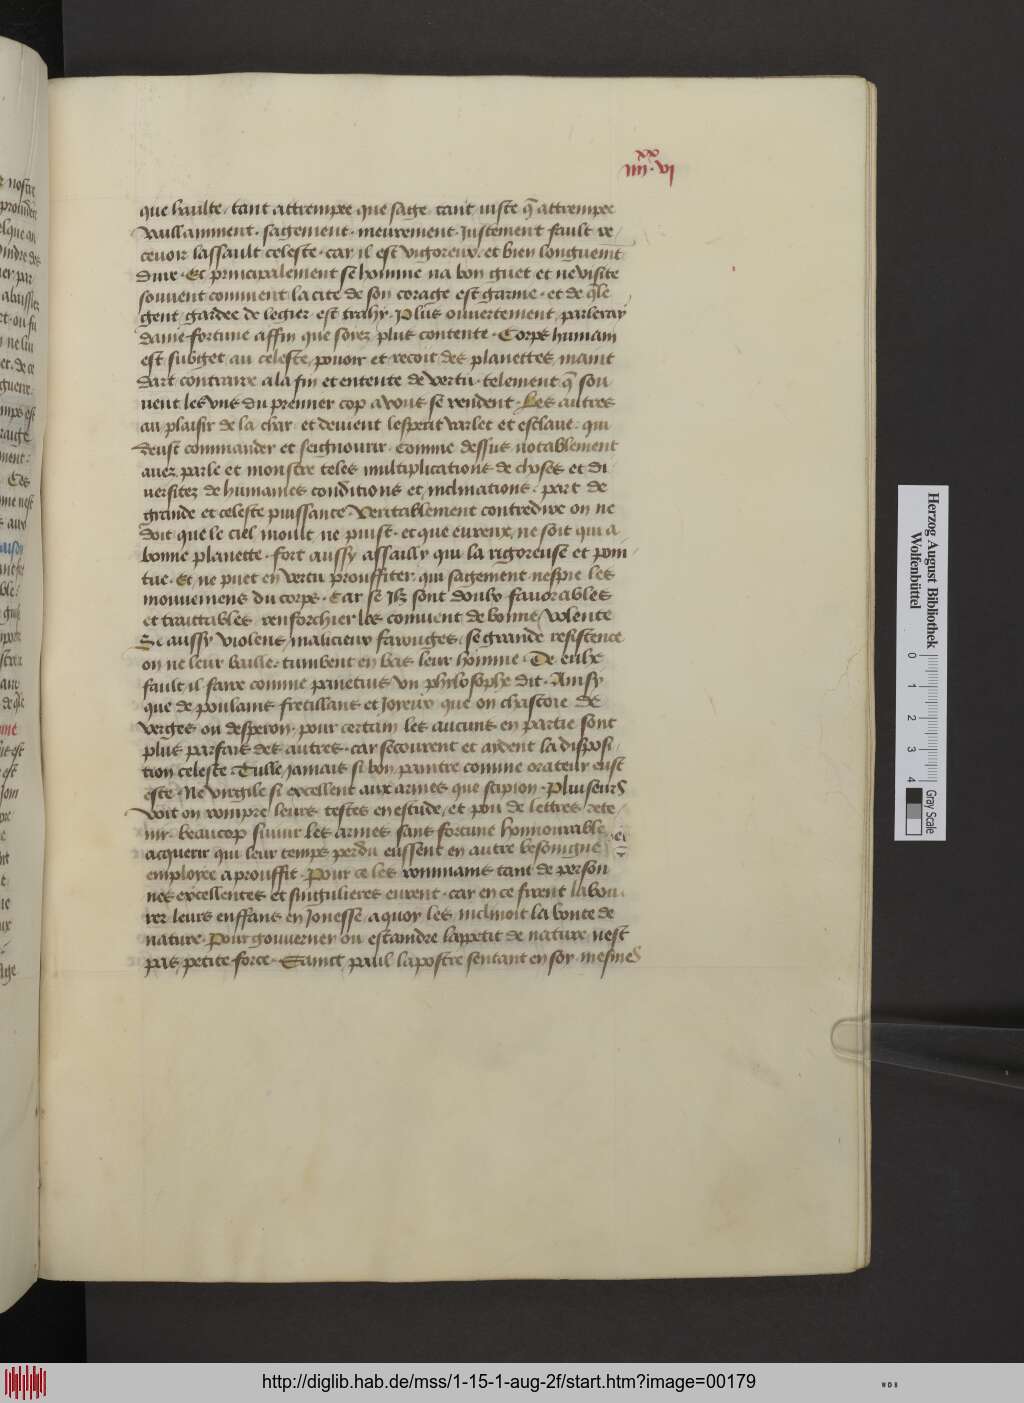 xx
iiii · vi
que haulte / tant attrempee que sage / tant iuste q̃ attrempee
Vaillamment · sagement · meurement · Justement fault re /
cevoir lassault celeste · car il est vigoreux / et bien longuemt
dure · Et principalement se homme na bon guet et ne visite
souvent comment la cite de son corage est garnie · et de q̃le
gent gardee de legier est trahy · Plus ouvertement parleray
dame fortune affin que soiez plus contente · Corps humain
est subget au celeste pouoir et recoit des planettes maint
dart contraire a la fin et entente de vertu · telement q̃ sou
uent les vns du premier cop a vous se rendent · Les autres
au plaisir de la char · et devient lesperit varlet et esclave · qui
deust commander et seignourir · Comme dessus notablement
auez parle et monstre teles multiplications de choses et di
uersitez de humaines conditions et inclinations · part de
grande et celeste puissance Veritablement contredire on ne
doit que le ciel moult ne puist · et que eureux ne soit qui a
bonne planette · fort aussy assailly qui la rigoreuse et poin /
tue · Et ne puet en vertu prouffiter qui sagement nespie les
mouuemens du corps · Car se Ilz sont doulx fauorables
et traittables renforchier les convient de bonne volente
Se aussy violens malicieux farouges / se grande resistence
on ne leur baille · tumbent en bas leur homme · De eulx
fault il faire comme panetius vn philosophe dit · Ainsy
que de poulains fretillans et Joyeux que on chastoie de
verges ou desperon · pour certain les aucuns en partie sont
plus parfais des autres · car sequeurent et aydent la disposi /
tion celeste Tulle jamais si bon paintre comme orateur eust
este · Ne virgile si excellent aux armes que scipion · Pluiseurs
Voit on rompre leurs testes en estude / et pou de lettres rete /
nir · beaucop sivuir les armes sans fortune honnourable
acquerir qui leur temps perdu eussent en autre besoingne
employee a prouffit · Pour ce les rommains tant de person
nes excellentes et singulieres eurent · car en ce firent labou
rer leurs enffans en Jonesse a quoy les inclinoit la bonte de
nature · Pour gouverner ou estaindre lappetit de nature nest
pas petite force · Sainct paul lapostre sentant en soy mesmes
Herzog August Bibliothek
Wolfenbüttel
0 1 2 3 4
Gray Scale
http://diglib.hab.de/mss/1-15-1-aug-2f/start.htm?image=00179
WDB